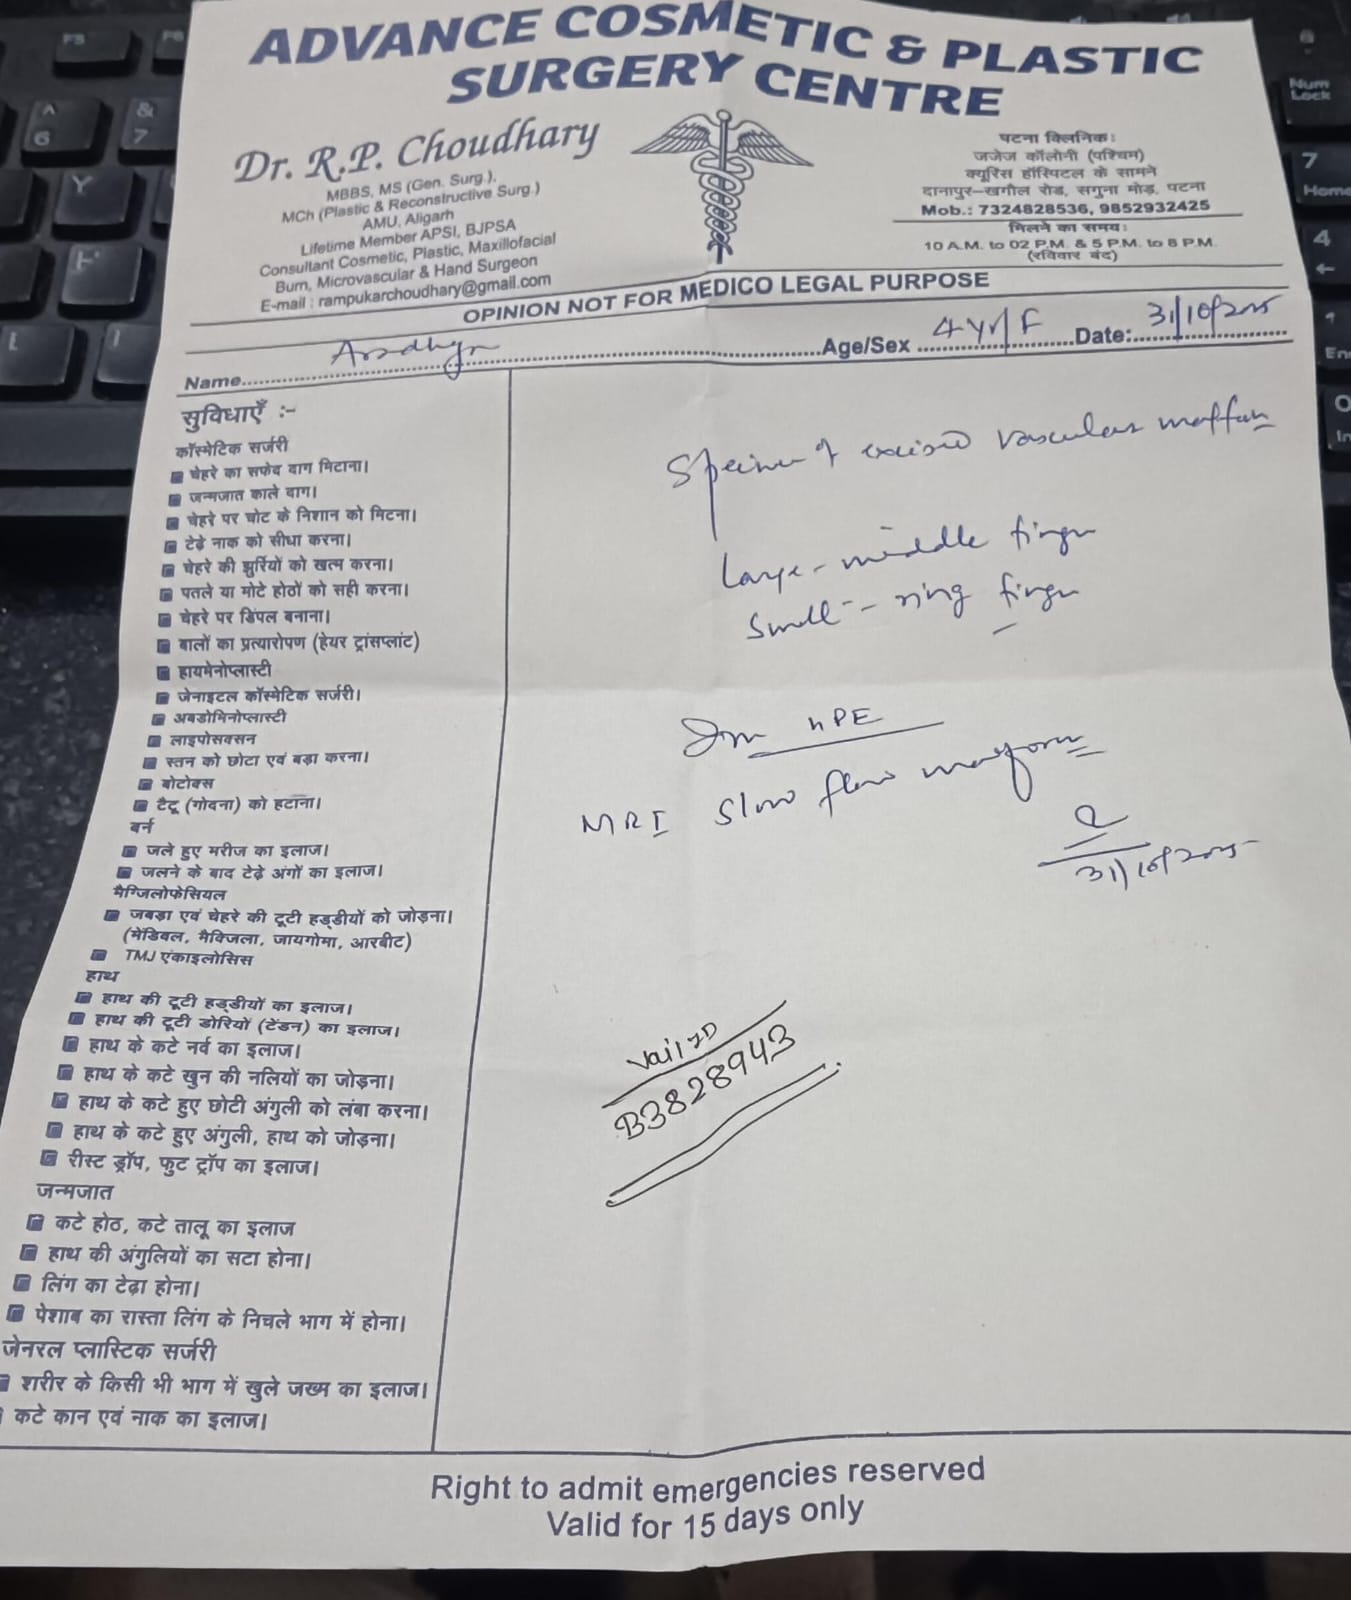 ADVANCE COSMETIC & PLASTIC
SURGERY CENTRE
Dr. R.P. Choudhary
MBBS, MS (Gen. Surg.),
MCh (Plastic & Reconstructive Surg.)
AMU, Aligarh
Lifetime Member APSI, BJPSA
Consultant Cosmetic, Plastic, Maxillofacial
Burn, Microvascular & Hand Surgeon
E-mail : rampukarchoudhary@gmail.com
पटना क्लिनिक:
जजेज कॉलोनी (पश्चिम)
क्यूरिस हॉस्पिटल के सामने
दानापुर-खगौल रोड, सगुना मोड़, पटना
Mob.: 7324828536, 9852932425
मिलने का समय:
10 A.M. to 02 P.M. & 5 P.M. to 8 P.M.
(रविवार बंद)
OPINION NOT FOR MEDICO LEGAL PURPOSE
Name Age/Sex 4 yr/F Date: 31/10/2025
सुविधाएँ :-
कॉस्मेटिक सर्जरी
चेहरे का सफेद दाग मिटाना।
जन्मजात काले दाग।
चेहरे पर चोट के निशान को मिटना।
टेढ़े नाक को सीधा करना।
चेहरे की झुर्रियों को खत्म करना।
पतले या मोटे होठों को सही करना।
चेहरे पर डिंपल बनाना।
बालों का प्रत्यारोपण (हेयर ट्रांसप्लांट)
हायमेनोप्लास्टी
जेनाइटल कॉस्मेटिक सर्जरी।
अबडोमिनोप्लास्टी
लाइपोसक्सन
स्तन को छोटा एवं बड़ा करना।
बोटोक्स
टैटू (गोदना) को हटाना।
बर्न
जले हुए मरीज का इलाज।
जलने के बाद टेढ़े अंगों का इलाज।
मैग्जिलोफेसियल
जबड़ा एवं चेहरे की टूटी हड्डीयों को जोड़ना।
(मेंडिबल, मैक्जिला, जायगोमा, आरबीट)
TMJ एंकाइलोसिस
हाथ
हाथ की टूटी हड्डीयों का इलाज।
हाथ की टूटी डोरियों (टेंडन) का इलाज।
हाथ के कटे नर्व का इलाज।
हाथ के कटे खुन की नलियों का जोड़ना।
हाथ के कटे हुए छोटी अंगुली को लंबा करना।
हाथ के कटे हुए अंगुली, हाथ को जोड़ना।
रीस्ट ड्रॉप, फुट ट्रॉप का इलाज।
जन्मजात
कटे होठ, कटे तालू का इलाज
हाथ की अंगुलियों का सटा होना।
लिंग का टेढ़ा होना।
पेशाब का रास्ता लिंग के निचले भाग में होना।
जेनरल प्लास्टिक सर्जरी
शरीर के किसी भी भाग में खुले जख्म का इलाज।
कटे कान एवं नाक का इलाज।
Specimen of excised vascular
Large - middle finger
Small - ring finger
HPE
MRI Slow flow
31/10/2025
Vail ID
B3828943
Right to admit emergencies reserved
Valid for 15 days only